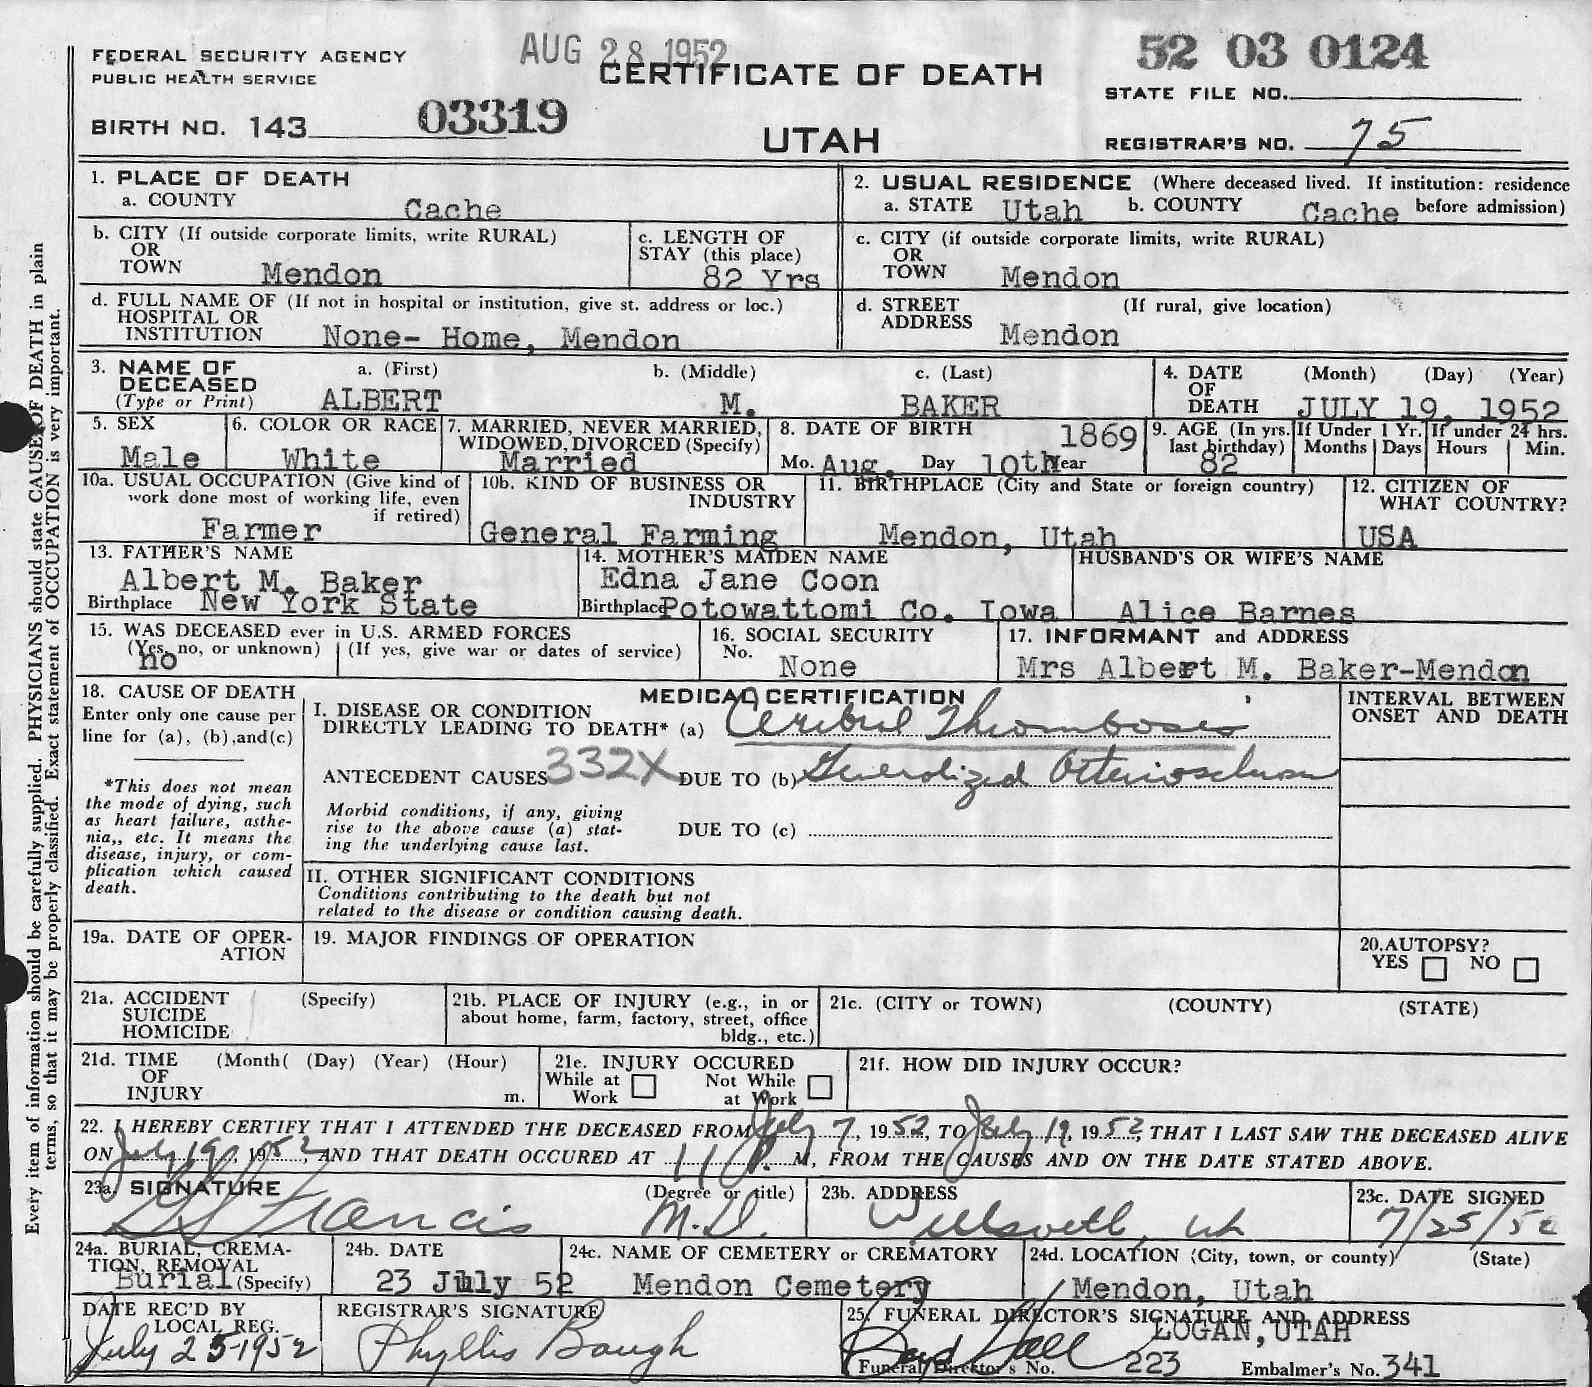 AUG 28 1952
52 03 0124
FEDERAL SECURITY AGENCY
PUBLIC HEALTH SERVICE
CERTIFICATE OF DEATH
STATE FILE NO.
BIRTH NO. 143 03319
UTAH
REGISTRAR'S NO. 75
Every item of information should be carefully supplied. PHYSICIANS should state CAUSE OF DEATH in plain
terms, so that it may be properly classified. Exact statement of OCCUPATION is very important.
1. PLACE OF DEATH
a. COUNTY Cache
2. USUAL RESIDENCE (Where deceased lived. If institution: residence
a. STATE Utah b. COUNTY Cache before admission)
b. CITY (If outside corporate limits, write RURAL)
OR
TOWN Mendon
c. LENGTH OF
STAY (this place)
82 Yrs
c. CITY (if outside corporate limits, write RURAL)
OR
TOWN Mendon
d. FULL NAME OF (If not in hospital or institution, give st. address or loc.)
HOSPITAL OR
INSTITUTION None- Home, Mendon
d. STREET (If rural, give location)
ADDRESS Mendon
3. NAME OF DECEASED
(Type or Print)
a. (First) b. (Middle) c. (Last)
ALBERT M. BAKER
4. DATE OF DEATH
(Month) (Day) (Year)
JULY 19, 1952
5. SEX
Male
6. COLOR OR RACE
White
7. MARRIED, NEVER MARRIED,
WIDOWED, DIVORCED (Specify)
Married
8. DATE OF BIRTH 1869
Mo. Aug. Day 10th Year
9. AGE (In yrs.
last birthday)
82
If Under 1 Yr.
Months Days
If under 24 hrs.
Hours Min.
10a. USUAL OCCUPATION (Give kind of
work done most of working life, even
if retired)
Farmer
10b. KIND OF BUSINESS OR
INDUSTRY
General Farming
11. BIRTHPLACE (City and State or foreign country)
Mendon, Utah
12. CITIZEN OF
WHAT COUNTRY?
USA
13. FATHER'S NAME
Albert M. Baker
Birthplace New York State
14. MOTHER'S MAIDEN NAME
Edna Jane Coon
Birthplace Potowattomi Co. Iowa
HUSBAND'S OR WIFE'S NAME
Alice Barnes
15. WAS DECEASED ever in U.S. ARMED FORCES
(Yes, no, or unknown) (If yes, give war or dates of service)
no
16. SOCIAL SECURITY
No. None
17. INFORMANT and ADDRESS
Mrs Albert M. Baker-Mendon
18. CAUSE OF DEATH
Enter only one cause per
line for (a), (b), and(c)
*This does not mean
the mode of dying, such
as heart failure, asthe-
nia,, etc. It means the
disease, injury, or com-
plication which caused
death.
MEDICAL CERTIFICATION
INTERVAL BETWEEN
ONSET AND DEATH
I. DISEASE OR CONDITION
DIRECTLY LEADING TO DEATH* (a) Cerebral Thrombosis
ANTECEDENT CAUSES 332X DUE TO (b) Generalized Arteriosclerosis
Morbid conditions, if any, giving
rise to the above cause (a) stat-
ing the underlying cause last.
DUE TO (c)
II. OTHER SIGNIFICANT CONDITIONS
Conditions contributing to the death but not
related to the disease or condition causing death.
19a. DATE OF OPER-
ATION
19. MAJOR FINDINGS OF OPERATION
20. AUTOPSY?
YES NO
21a. ACCIDENT (Specify)
SUICIDE
HOMICIDE
21b. PLACE OF INJURY (e.g., in or
about home, farm, factory, street, office
bldg., etc.)
21c. (CITY or TOWN) (COUNTY) (STATE)
21d. TIME (Month( (Day) (Year) (Hour)
OF
INJURY m.
21e. INJURY OCCURED
While at Work Not While at Work
21f. HOW DID INJURY OCCUR?
22. I HEREBY CERTIFY THAT I ATTENDED THE DECEASED FROM July 7, 1952, TO July 19, 1952, THAT I LAST SAW THE DECEASED ALIVE
ON July 19, 1952, AND THAT DEATH OCCURED AT 11 P. M., FROM THE CAUSES AND ON THE DATE STATED ABOVE.
23a. SIGNATURE (Degree or title)
Francis M.D.
23b. ADDRESS
Wellsville, Ut
23c. DATE SIGNED
7/25/52
24a. BURIAL, CREMA-
TION, REMOVAL
Burial (Specify)
24b. DATE
23 July 52
24c. NAME OF CEMETERY or CREMATORY
Mendon Cemetery
24d. LOCATION (City, town, or county) (State)
Mendon, Utah
DATE REC'D BY
LOCAL REG.
July 25-1952
REGISTRAR'S SIGNATURE
Phyllis Baugh
25. FUNERAL DIRECTOR'S SIGNATURE AND ADDRESS
LOGAN, UTAH
Boyd Hall
Funeral Director's No. 223 Embalmer's No. 341